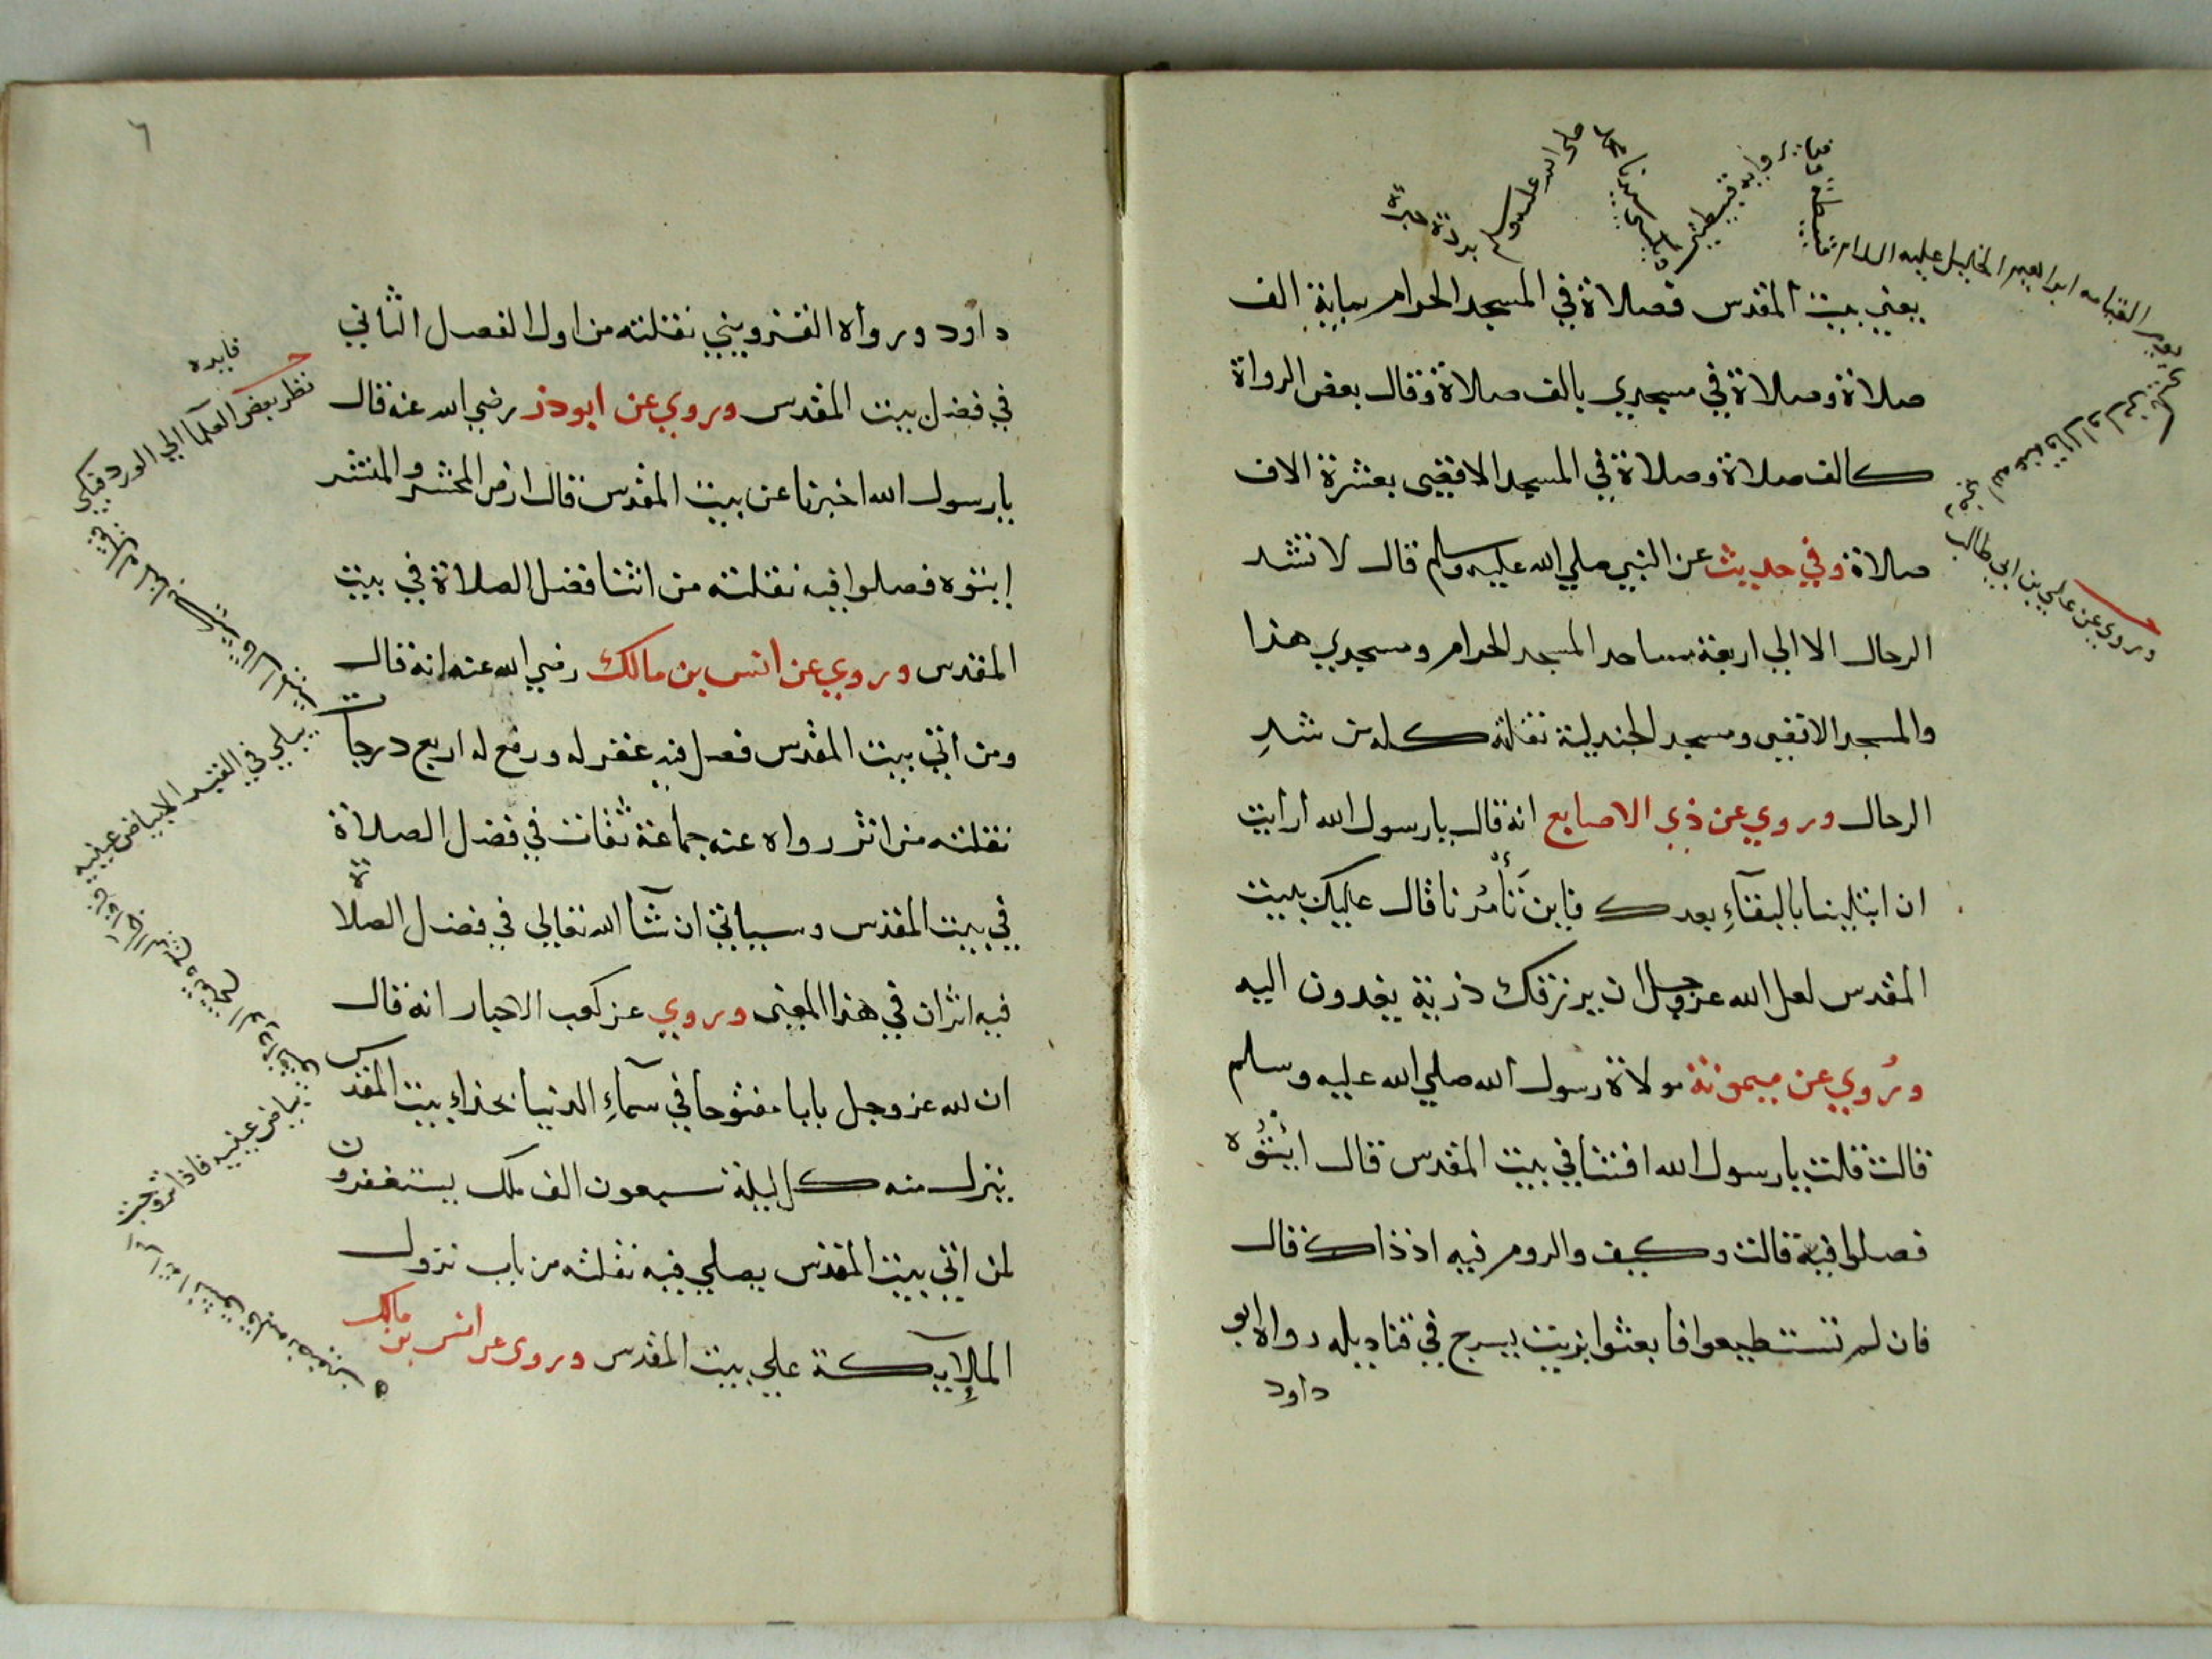 يعني بيت المقدس فصلاة في المسجد الحرام بماية الف
صلاة وصلاة في مسجدي بالف صلاة وقال بعض الرواة
كالف صلاة وصلاة في المسجد الاقصى بعشرة الاف
صلاة وفي حديث عن النبي صلي الله عليه وسلم قال لا تشد
الرحال الا الي اربعة مساجد المسجد الحرام ومسجدي هذا
والمسجد الاقصى ومسجد الجند نقلته كله من شد
الرحال وروي عن ذي الاصابع انه قال يا رسول الله ارأيت
ان ابتلينا بالبقآء بعدك فاين تَأمُرنا قال عليك ببيت
المقدس لعل الله عز وجل ان يرزقك ذرية يغدون اليه
ورُوي عن ميمونة مولاة رسول الله صلي الله عليه وسلم
قالت قلت يا رسول الله افتنا في بيت المقدس قال ائتُوه
فصلوا فيه قالت وكيف والروم فيه اذ ذاك قال
فان لم تستطيعوا فابعثوا بزيت يسرج في قناديله رواه ابو
داود
وروي عن علي بن ابي طالب
رضي الله عنه قال اول من
يكسى يوم القيامه ابراهيم الخليل عليه السلام
قبطية وفي رواية قبطيتين
ويكسى سيدنا محمد
صلى الله عليه وسلم
بردة حبرة
٦
داود ورواه القزويني نقلته من اول الفصل الثاني
في فضل بيت المقدس وروي عن ابو ذر رضي الله عنه قال
يا رسول الله اخبرنا عن بيت المقدس قال ارض المحشر والمنشر
إيتوه فصلوا فيه نقلته من اثنا فضل الصلاة في بيت
المقدس وروي عن انس بن مالك رضي الله عنه انه قال
ومن اتي بيت المقدس فصل فيه غفر له ورفع له اربع درجات
نقلته من اثر رواه عنه جماعة ثقات في فضل الصلاة
في بيت المقدس وسياتي ان شآ الله تعالي في فضل الصلاة
فيه اثران في هذا المعنى وروي عن كعب الاحبار انه قال
ان لله عز وجل بابا مفتوحا في سمآءِ الدنيا بحذاء بيت المقدس
ينزل منه كل ليلة سبعون الف ملك يستغفرون
لمن اتي بيت المقدس يصلي فيه نقلته من باب نزول
الملايكة علي بيت المقدس وروي عن انس بن مالك
فايده
نظر بعض العلما الي الورد فبكي